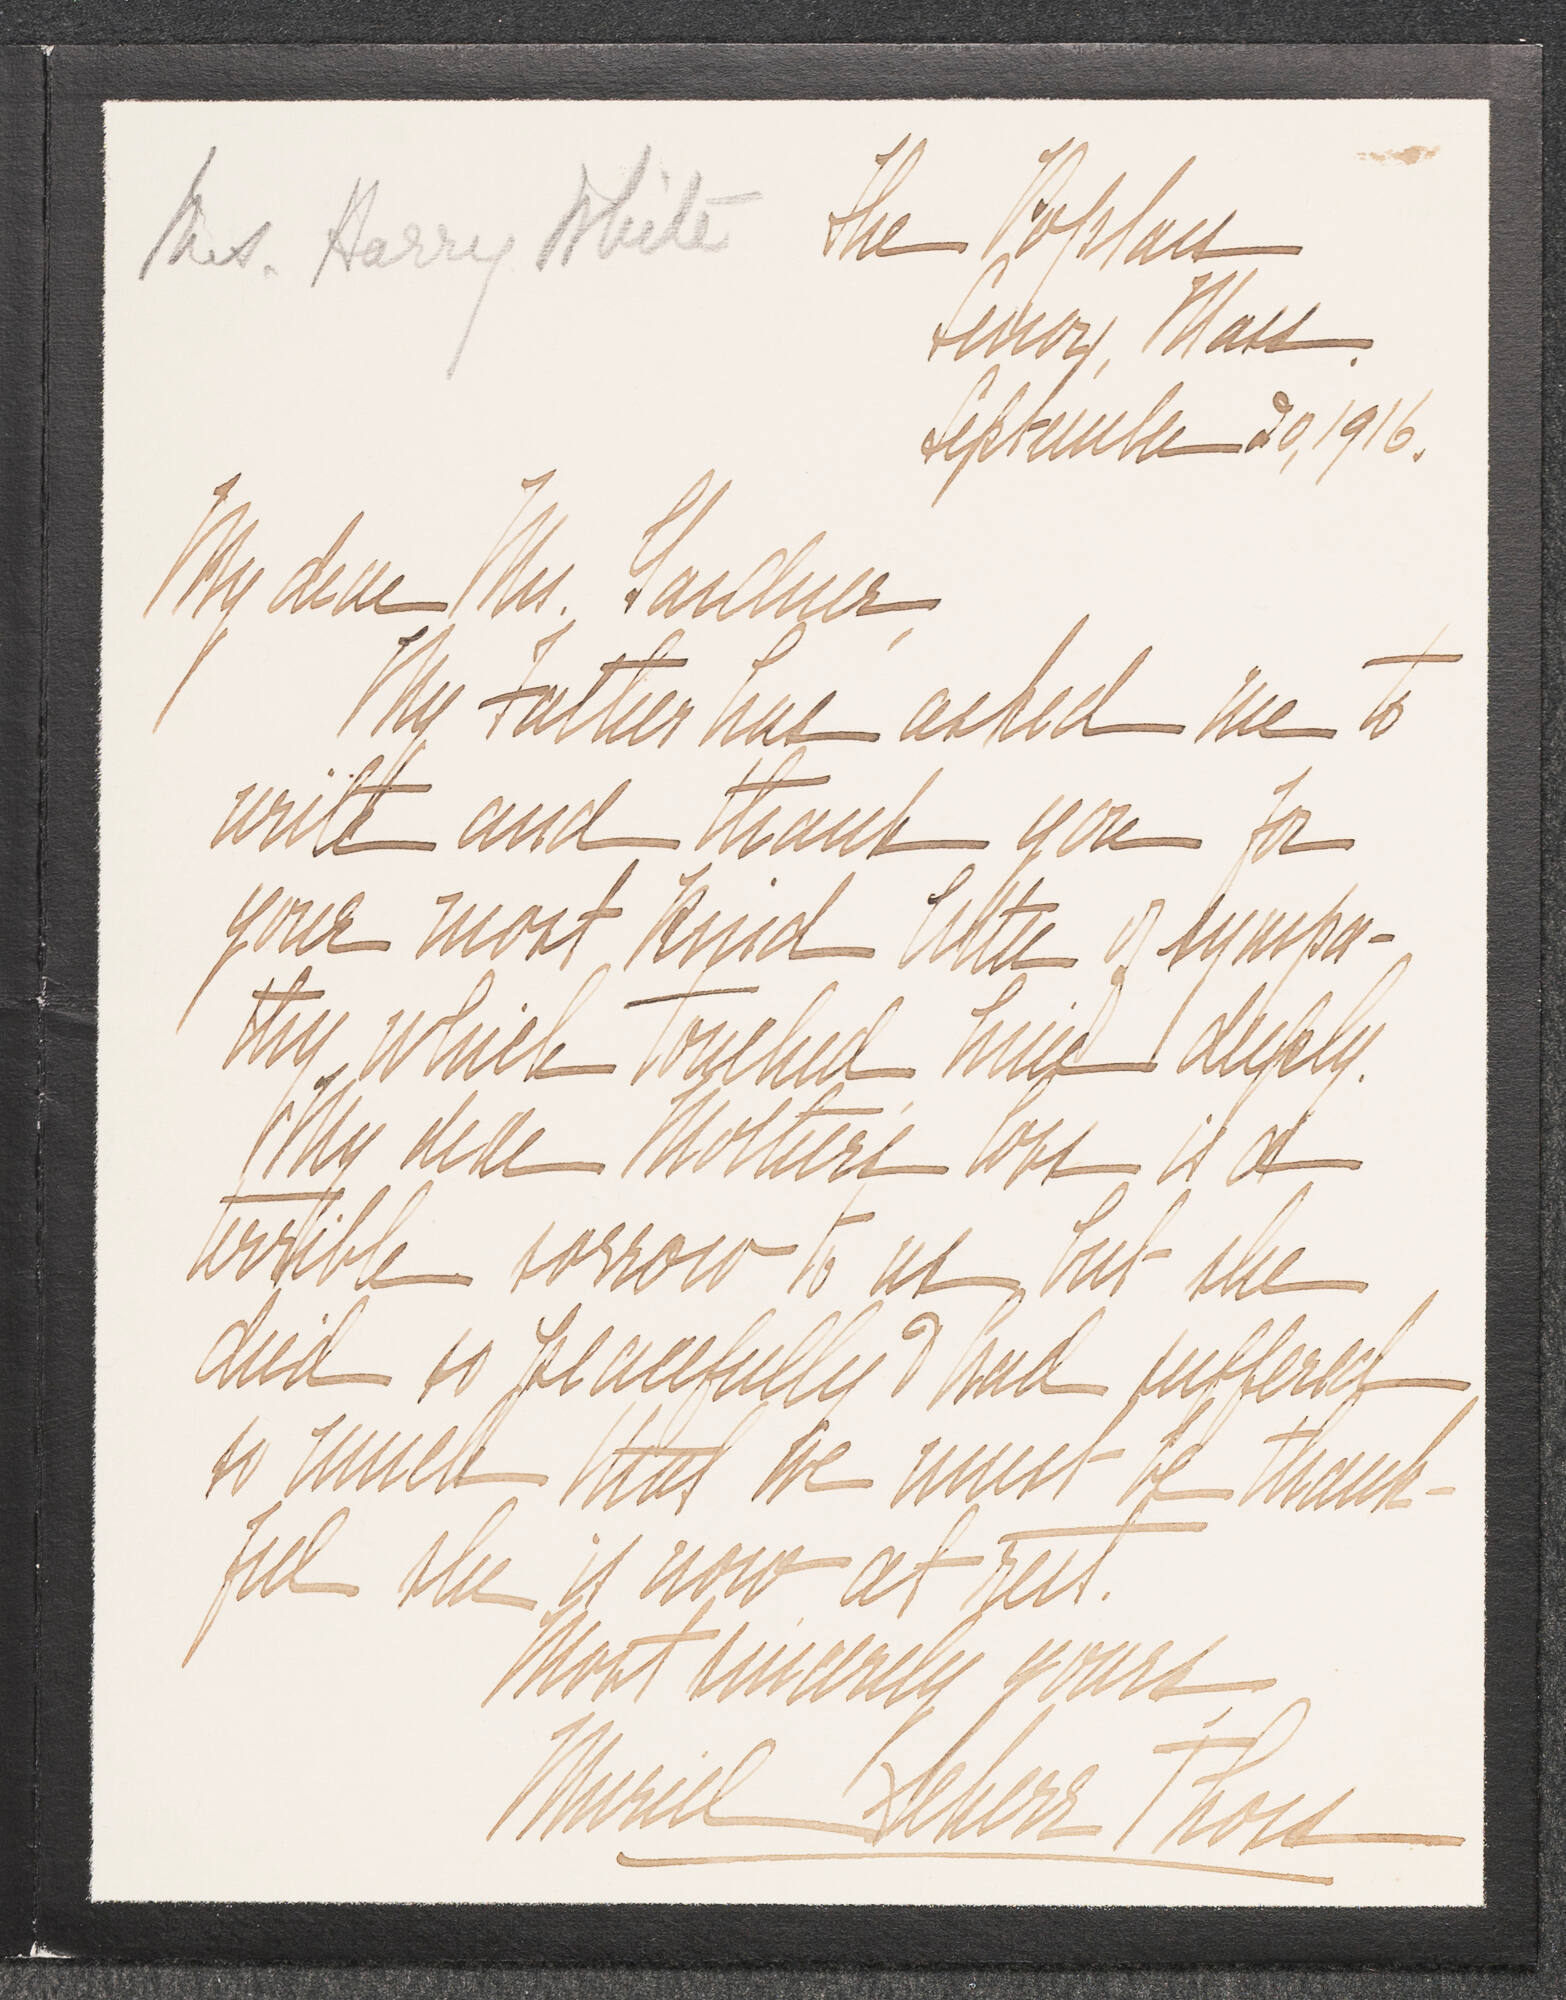 Mrs. Harry White
The Poplars
Lenox, Mass.
September 20, 1916.
My dear Mrs. Gardner,
My Father has asked me to
write and thank you for
your most kind letter of sympa-
thy which touched him deeply.
My dear Mother's loss is a
terrible sorrow to us but she
died so peacefully & had suffered
so much that we must be thank-
ful she is now at rest.
Most sincerely yours,
Muriel Seherr Thoss